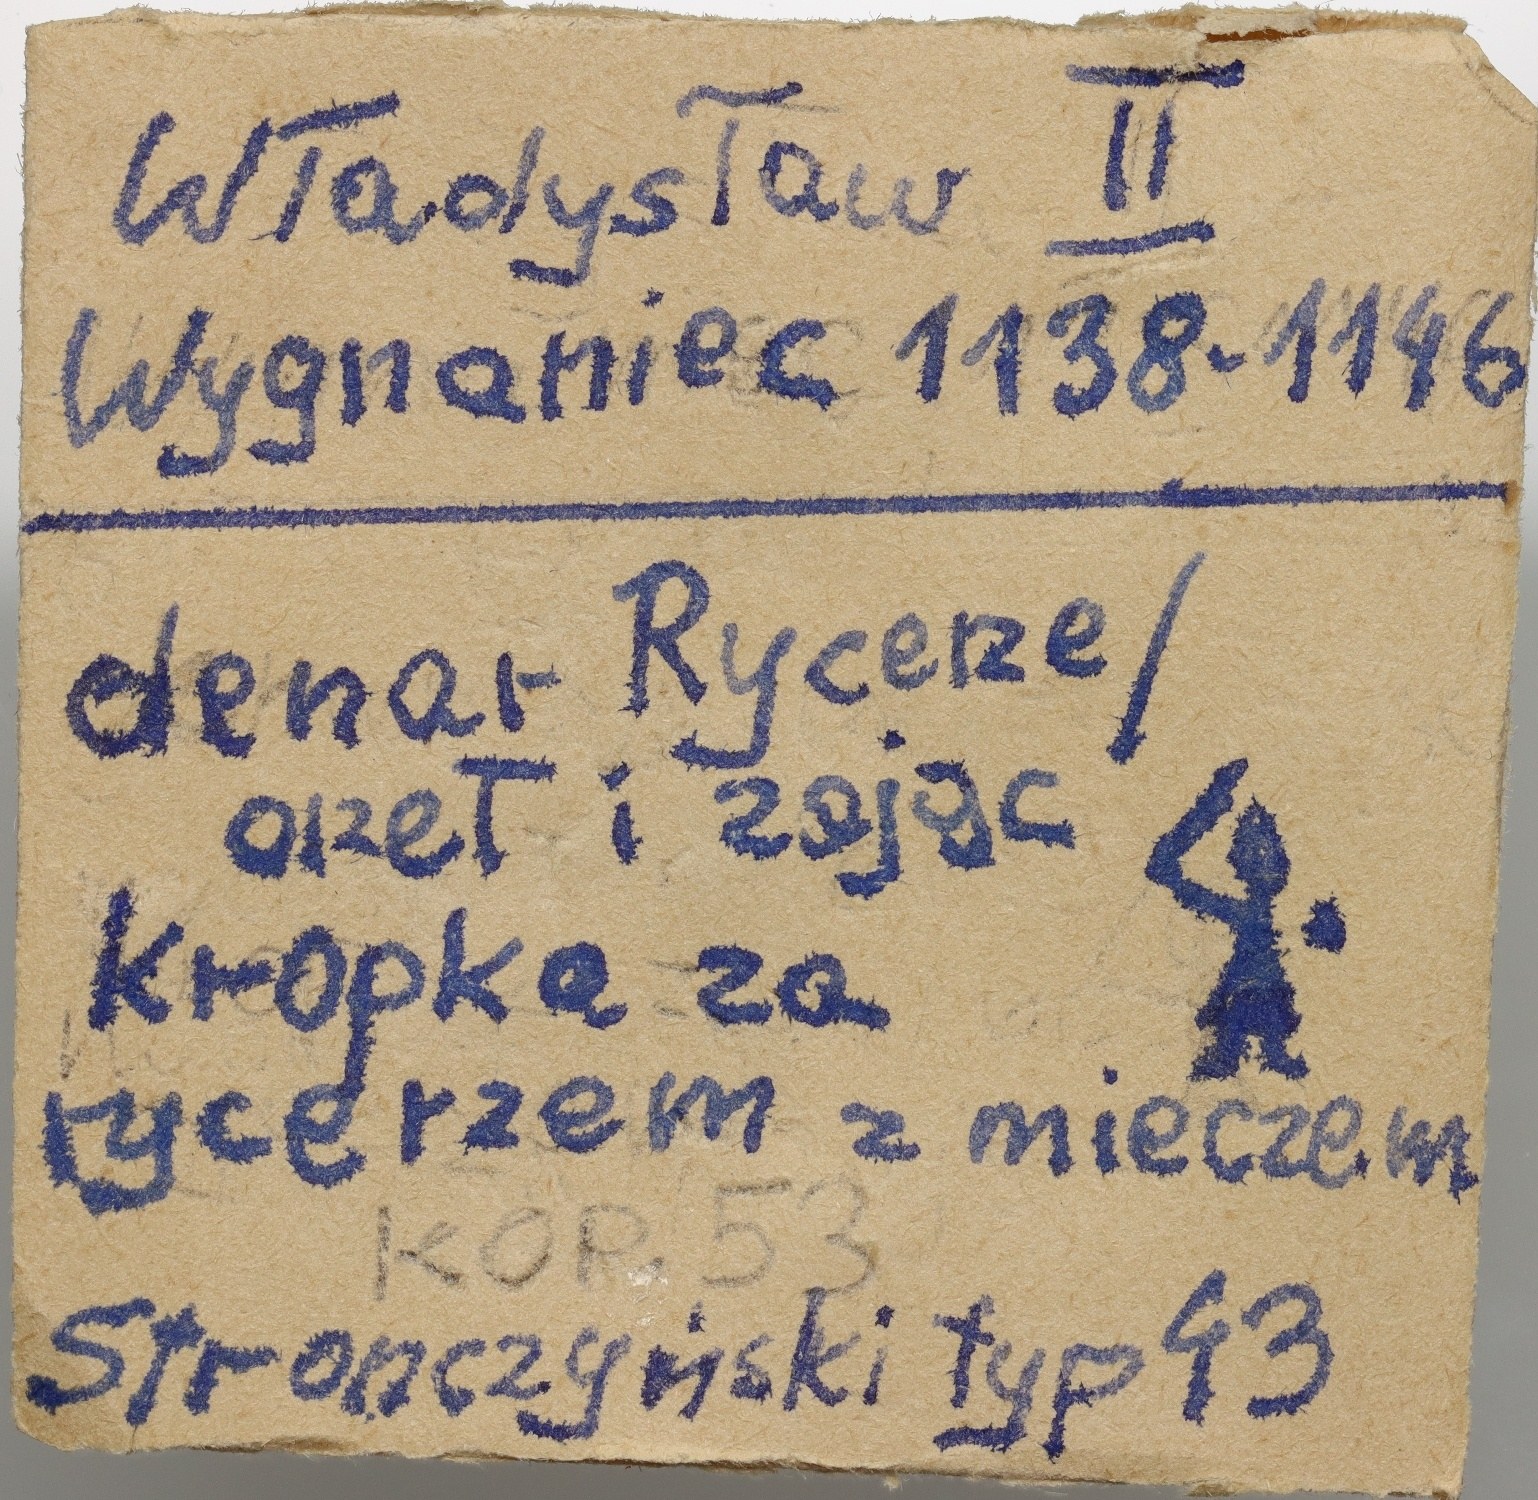 Władysław II
Wygnaniec 1138-1146
denar Rycerze/
orzeł i zając
kropka za
rycerzem z mieczem
KOP. 53
Stronczyński typ 43